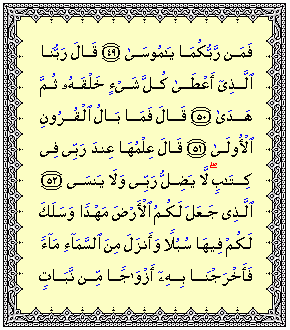 فَمَن رَّبُّكُمَا يَٰمُوسَىٰ ٤٩ قَالَ رَبُّنَا
ٱلَّذِىٓ أَعْطَىٰ كُلَّ شَىْءٍ خَلْقَهُۥ ثُمَّ
هَدَىٰ ٥٠ قَالَ فَمَا بَالُ ٱلْقُرُونِ
ٱلْأُولَىٰ ٥١ قَالَ عِلْمُهَا عِندَ رَبِّى فِى
كِتَٰبٍۖ لَّا يَضِلُّ رَبِّى وَلَا يَنسَى ٥٢
ٱلَّذِى جَعَلَ لَكُمُ ٱلْأَرْضَ مَهْدًا وَسَلَكَ
لَكُمْ فِيهَا سُبُلًا وَأَنزَلَ مِنَ ٱلسَّمَآءِ مَآءً
فَأَخْرَجْنَا بِهِۦٓ أَزْوَٰجًا مِّن نَّبَاتٍ